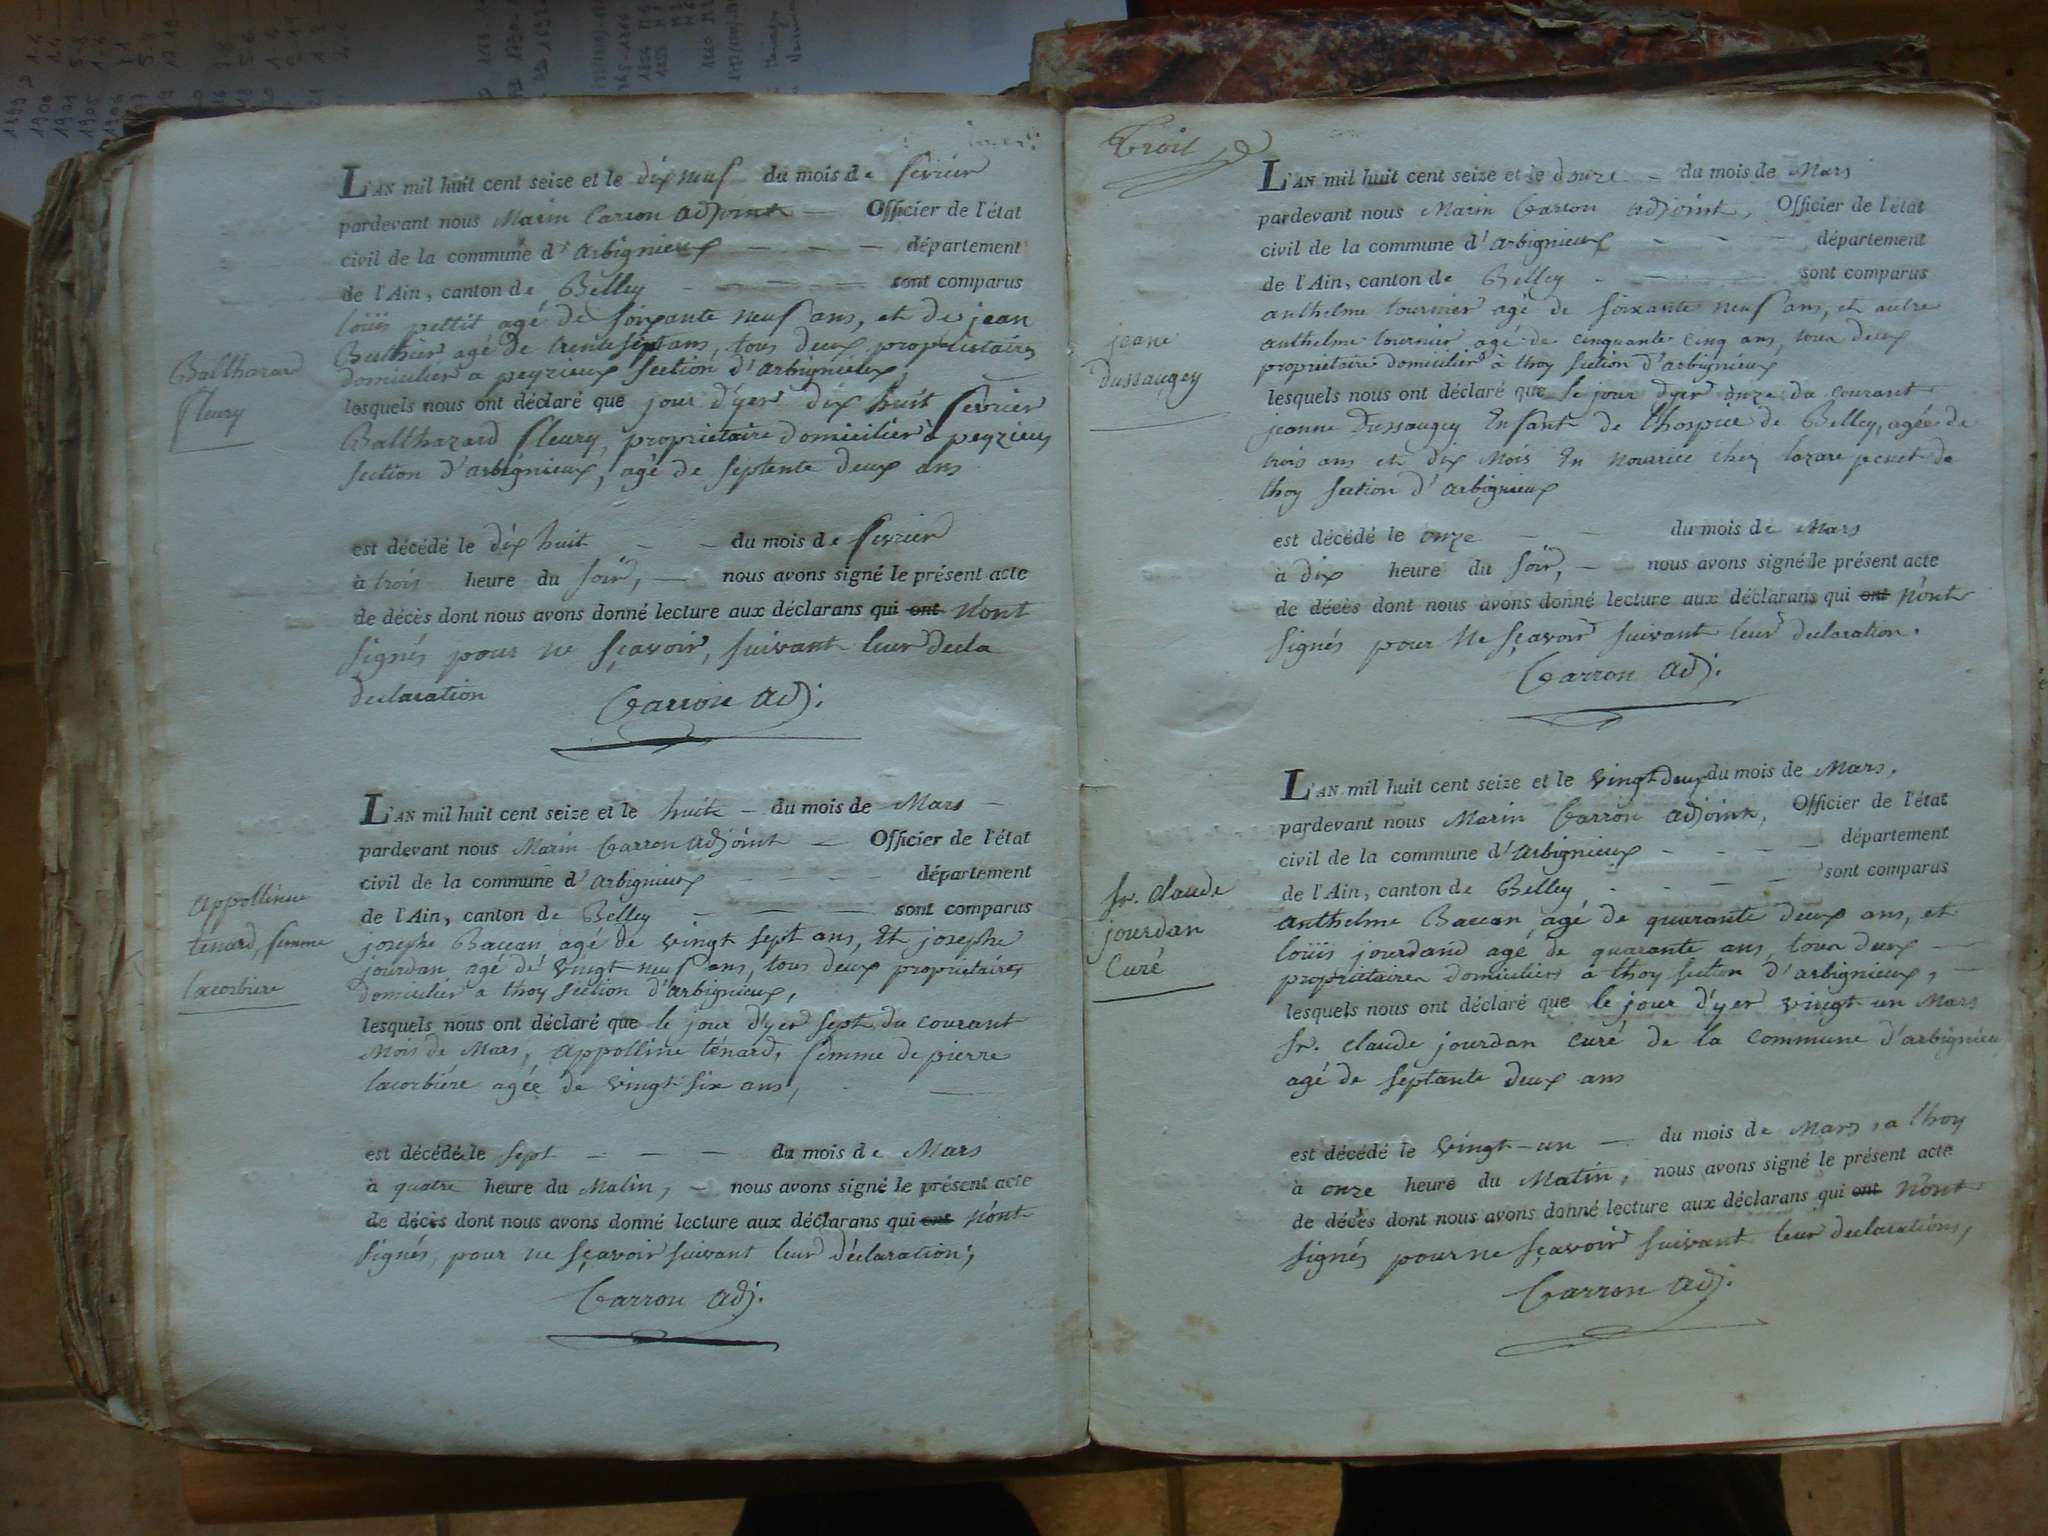 Balthazard
fleury
L'AN mil huit cent seize et le dix neuf du mois de fevrier
pardevant nous Marin Carron adjoint — Officier de l'état
civil de la commune d'arbignieux — — — département
de l'Ain, canton de Belley - — — — sont comparus
loüis pettit agé de soixante neuf ans, et de jean
Berthier agé de trente sept ans, tous deux proprietaires
domicilier a peyzieux section d'arbignieux,
lesquels nous ont déclaré que jour d'yer dix huit fevrier
Balthazard fleury, proprietaire domicilier a peyzieux
section d'arbignieux, agé de septente deux ans
est décédé le dix huit - - du mois de fevrier
à trois heure du soir, — nous avons signé le présent acte
de décès dont nous avons donné lecture aux déclarans qui ont n'ont
signés pour ne sçavoir, suivant leur decla
declaration Carron adj.
appolline
tenard, femme
lacorbiere
L'AN mil huit cent seize et le huit — du mois de Mars —
pardevant nous Marin Carron adjoint — Officier de l'état
civil de la commune d'arbignieux - - - - département
de l'Ain, canton de Belley - — — — sont comparus
josephe Baccan agé de vingt sept ans, Et josephe
jourdan agé de vingt neuf ans, tous deux proprietaires
domicilier a thoy section d'arbignieux,
lesquels nous ont déclaré que le jour d'yer sept du courant
Mois de Mars, appolline ténard, femme de pierre
lacorbiére agée de vingt six ans, - —
est décédé le sept - - — du mois de Mars
à quatre heure du Matin, — nous avons signé le présent acte
de décès dont nous avons donné lecture aux déclarans qui ont n'ont
signés, pour ne sçavoir suivant leur déclaration;
Carron adj.
Troit
jeane
Dussaugey
L'AN mil huit cent seize et le douze — du mois de Mars
pardevant nous Marin Carron adjoint, Officier de l'état
civil de la commune d'arbignieux - - - département
de l'Ain, canton de Belley - — — sont comparus
anthelme tournier agé de soixante neuf ans, et autre
anthelme tournier agé de cinquante cinq ans, tous deux
proprietaire domicilier à thoy section d'arbignieux
lesquels nous ont déclaré que le jour d'yer onze du courant
jeanne Dussaugey Enfant de l'hospice de Belley, agée de
trois ans et dix Mois En nourice chez lazare de
thoy section d'arbignieux
est décédé le onze - - du mois de Mars
à dix heure du soir, — nous avons signé le présent acte
de décès dont nous avons donné lecture aux déclarans qui ont n'ont
signés pour Ne sçavoir suivant leur declaration.
Carron adj.
fr. claude
jourdan
Curé
L'AN mil huit cent seize et le vingt deux du mois de Mars,
pardevant nous Marin Carron adjoint, Officier de l'état
civil de la commune d'arbignieux - - - - département
de l'Ain, canton de Belley - - — — sont comparus
anthelme Baccan agé de quarante deux ans, et
loüis jourdand agé de quarante ans, tous deux —
proprietaires domiciliers a thoy section d'arbignieux, —
lesquels nous ont déclaré que le jour d'yer vingt un Mars
fr. claude jourdan curé de la commune d'arbignieux
agé de septante deux ans
est décédé le vingt-un — du mois de Mars, a thoy
à onze heure du Matin, nous avons signé le présent acte
de décès dont nous avons donné lecture aux déclarans qui ont n'ont
signés pour ne sçavoir suivant leur declarations,
Carron adj.